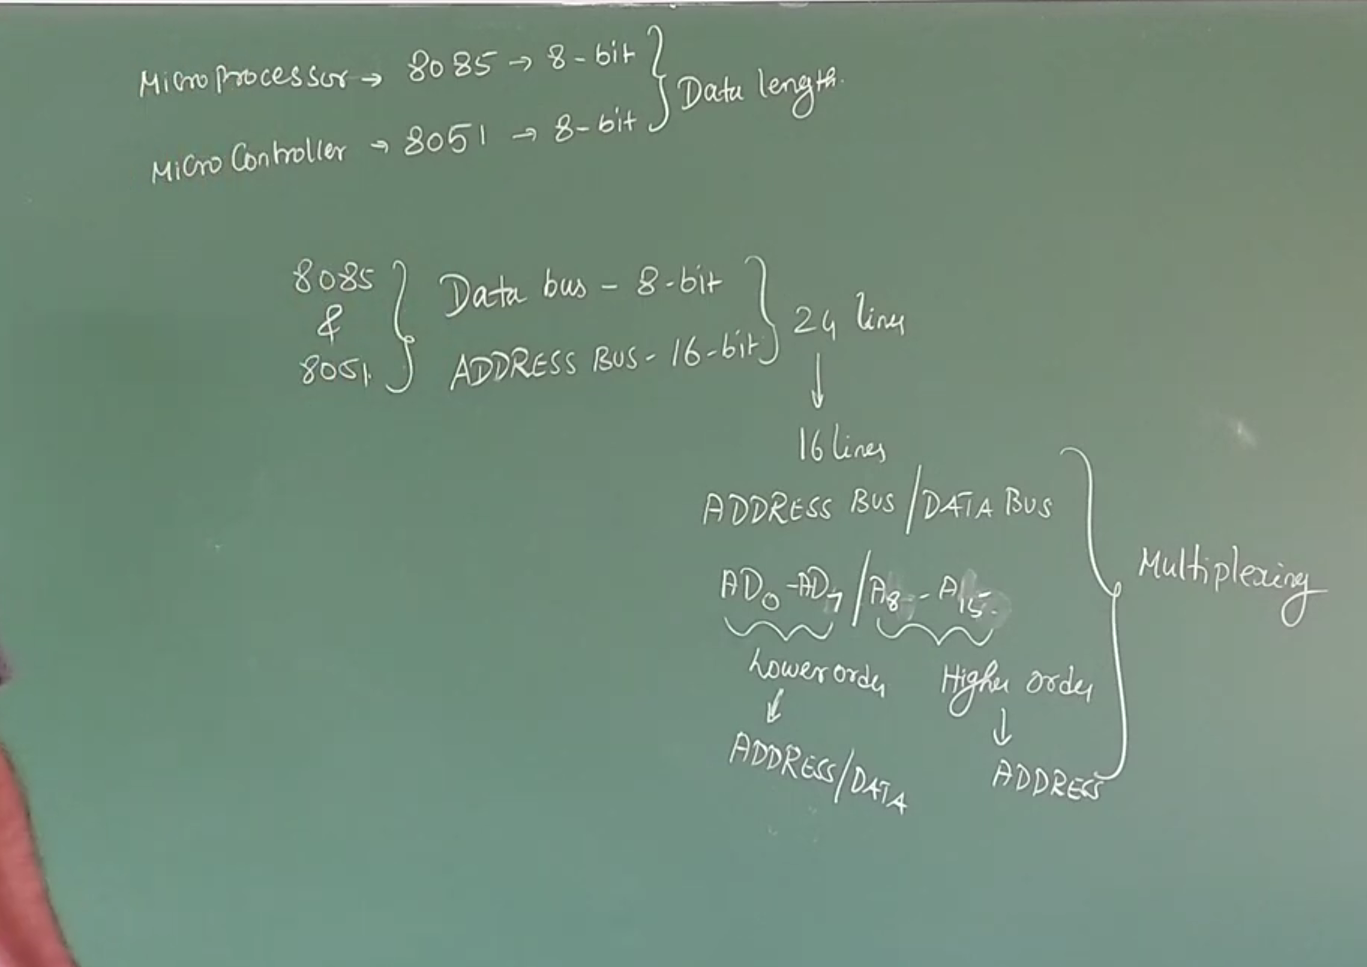 MicroProcessor → 8085 → 8-bit
Micro Controller → 8051 → 8-bit
Data length.
8085
&
8051.
Data bus - 8-bit
ADDRESS BUS - 16-bit
24 lines
↓
16 lines
ADDRESS BUS / DATA BUS
AD₀-AD₇ / A₈ - A₁₅
Lower order Higher order
↓ ↓
ADDRESS/DATA ADDRESS
Multiplexing